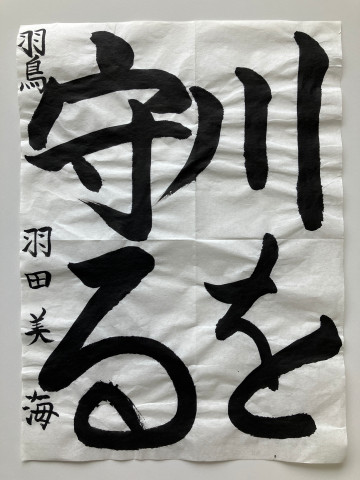 川を
守る
羽鳥 羽田美海